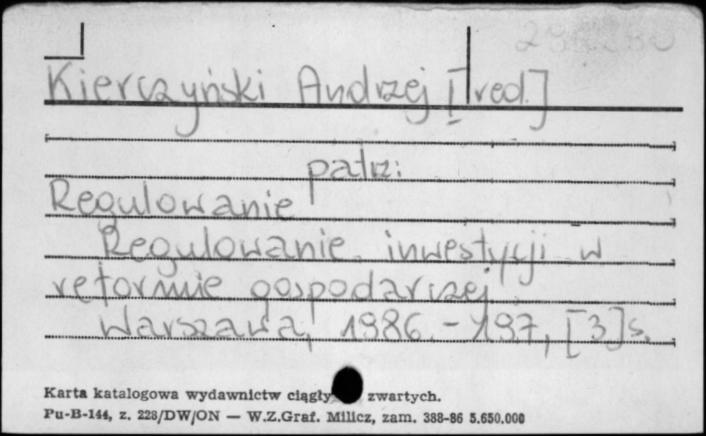 Kierczyński Andrzej [red.]
patrz:
Regulowanie
Regulowanie inwestycji w
reformie gospodarczej
Warszawa, 1986. - 197, [3] s.
Karta katalogowa wydawnictw zwartych.
Pu-B-144, z. 228/DW/ON — W.Z.Graf. Milicz, zam. 388-86 5.650.000